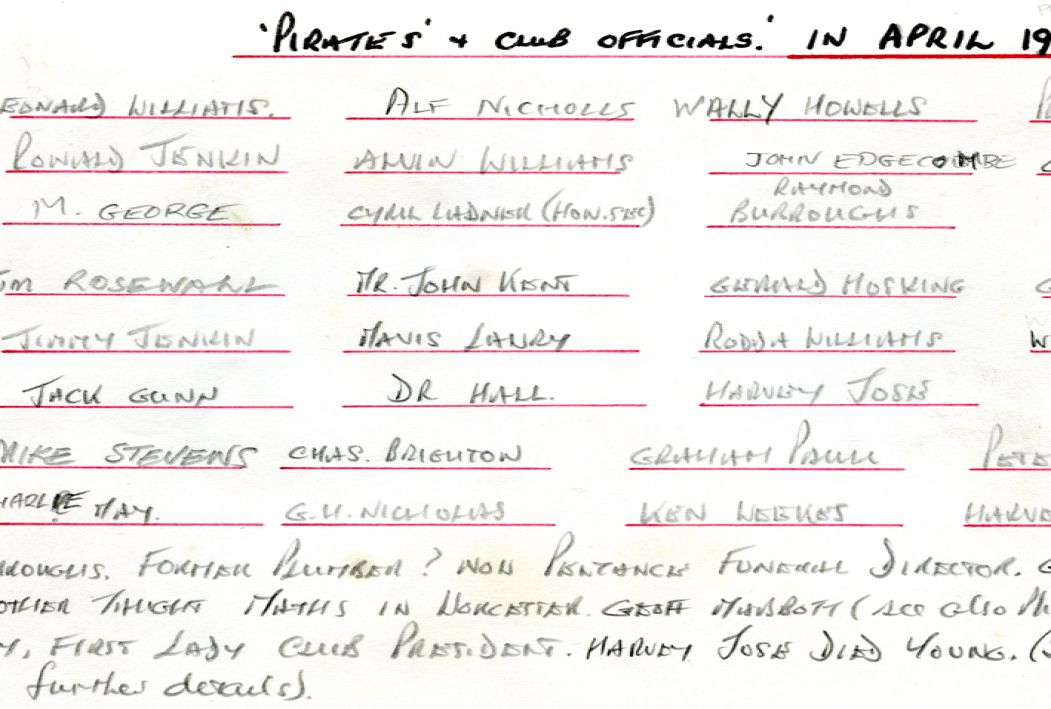 'PIRATES' + CLUB OFFICIALS.' IN APRIL 19
EDNARD WILLIAMS. ALF NICHOLLS WALLY HOWELLS
RONALD JENKIN ALVIN WILLIAMS JOHN EDGECOMBE
M. GEORGE CYRIL LADNER (HON. SEC) RAYMOND BURROUGHS
ROSEWARL MR. JOHN KENT GERALD HOSKING
JIMMY JENKIN MAVIS LANRY RODDA WILLIAMS
JACK GUNN DR HALL. HARVEY JOSE
MIKE STEVENS CHAS. BRIGHTON GRAHAM PAUL PETE
HARLIE MAY. G.H. NICHOLAS KEN WEEKES HARVE
ROUGHS. FORMER PLUMBER? NOW PENZANCE FUNERAL DIRECTOR. G
OTHER TAUGHT MATHS IN WORCESTER. GEOFF MABBOTT (see also Ph
Y, FIRST LADY CLUB PRESIDENT. HARVEY JOSE DIED YOUNG. (
further details).